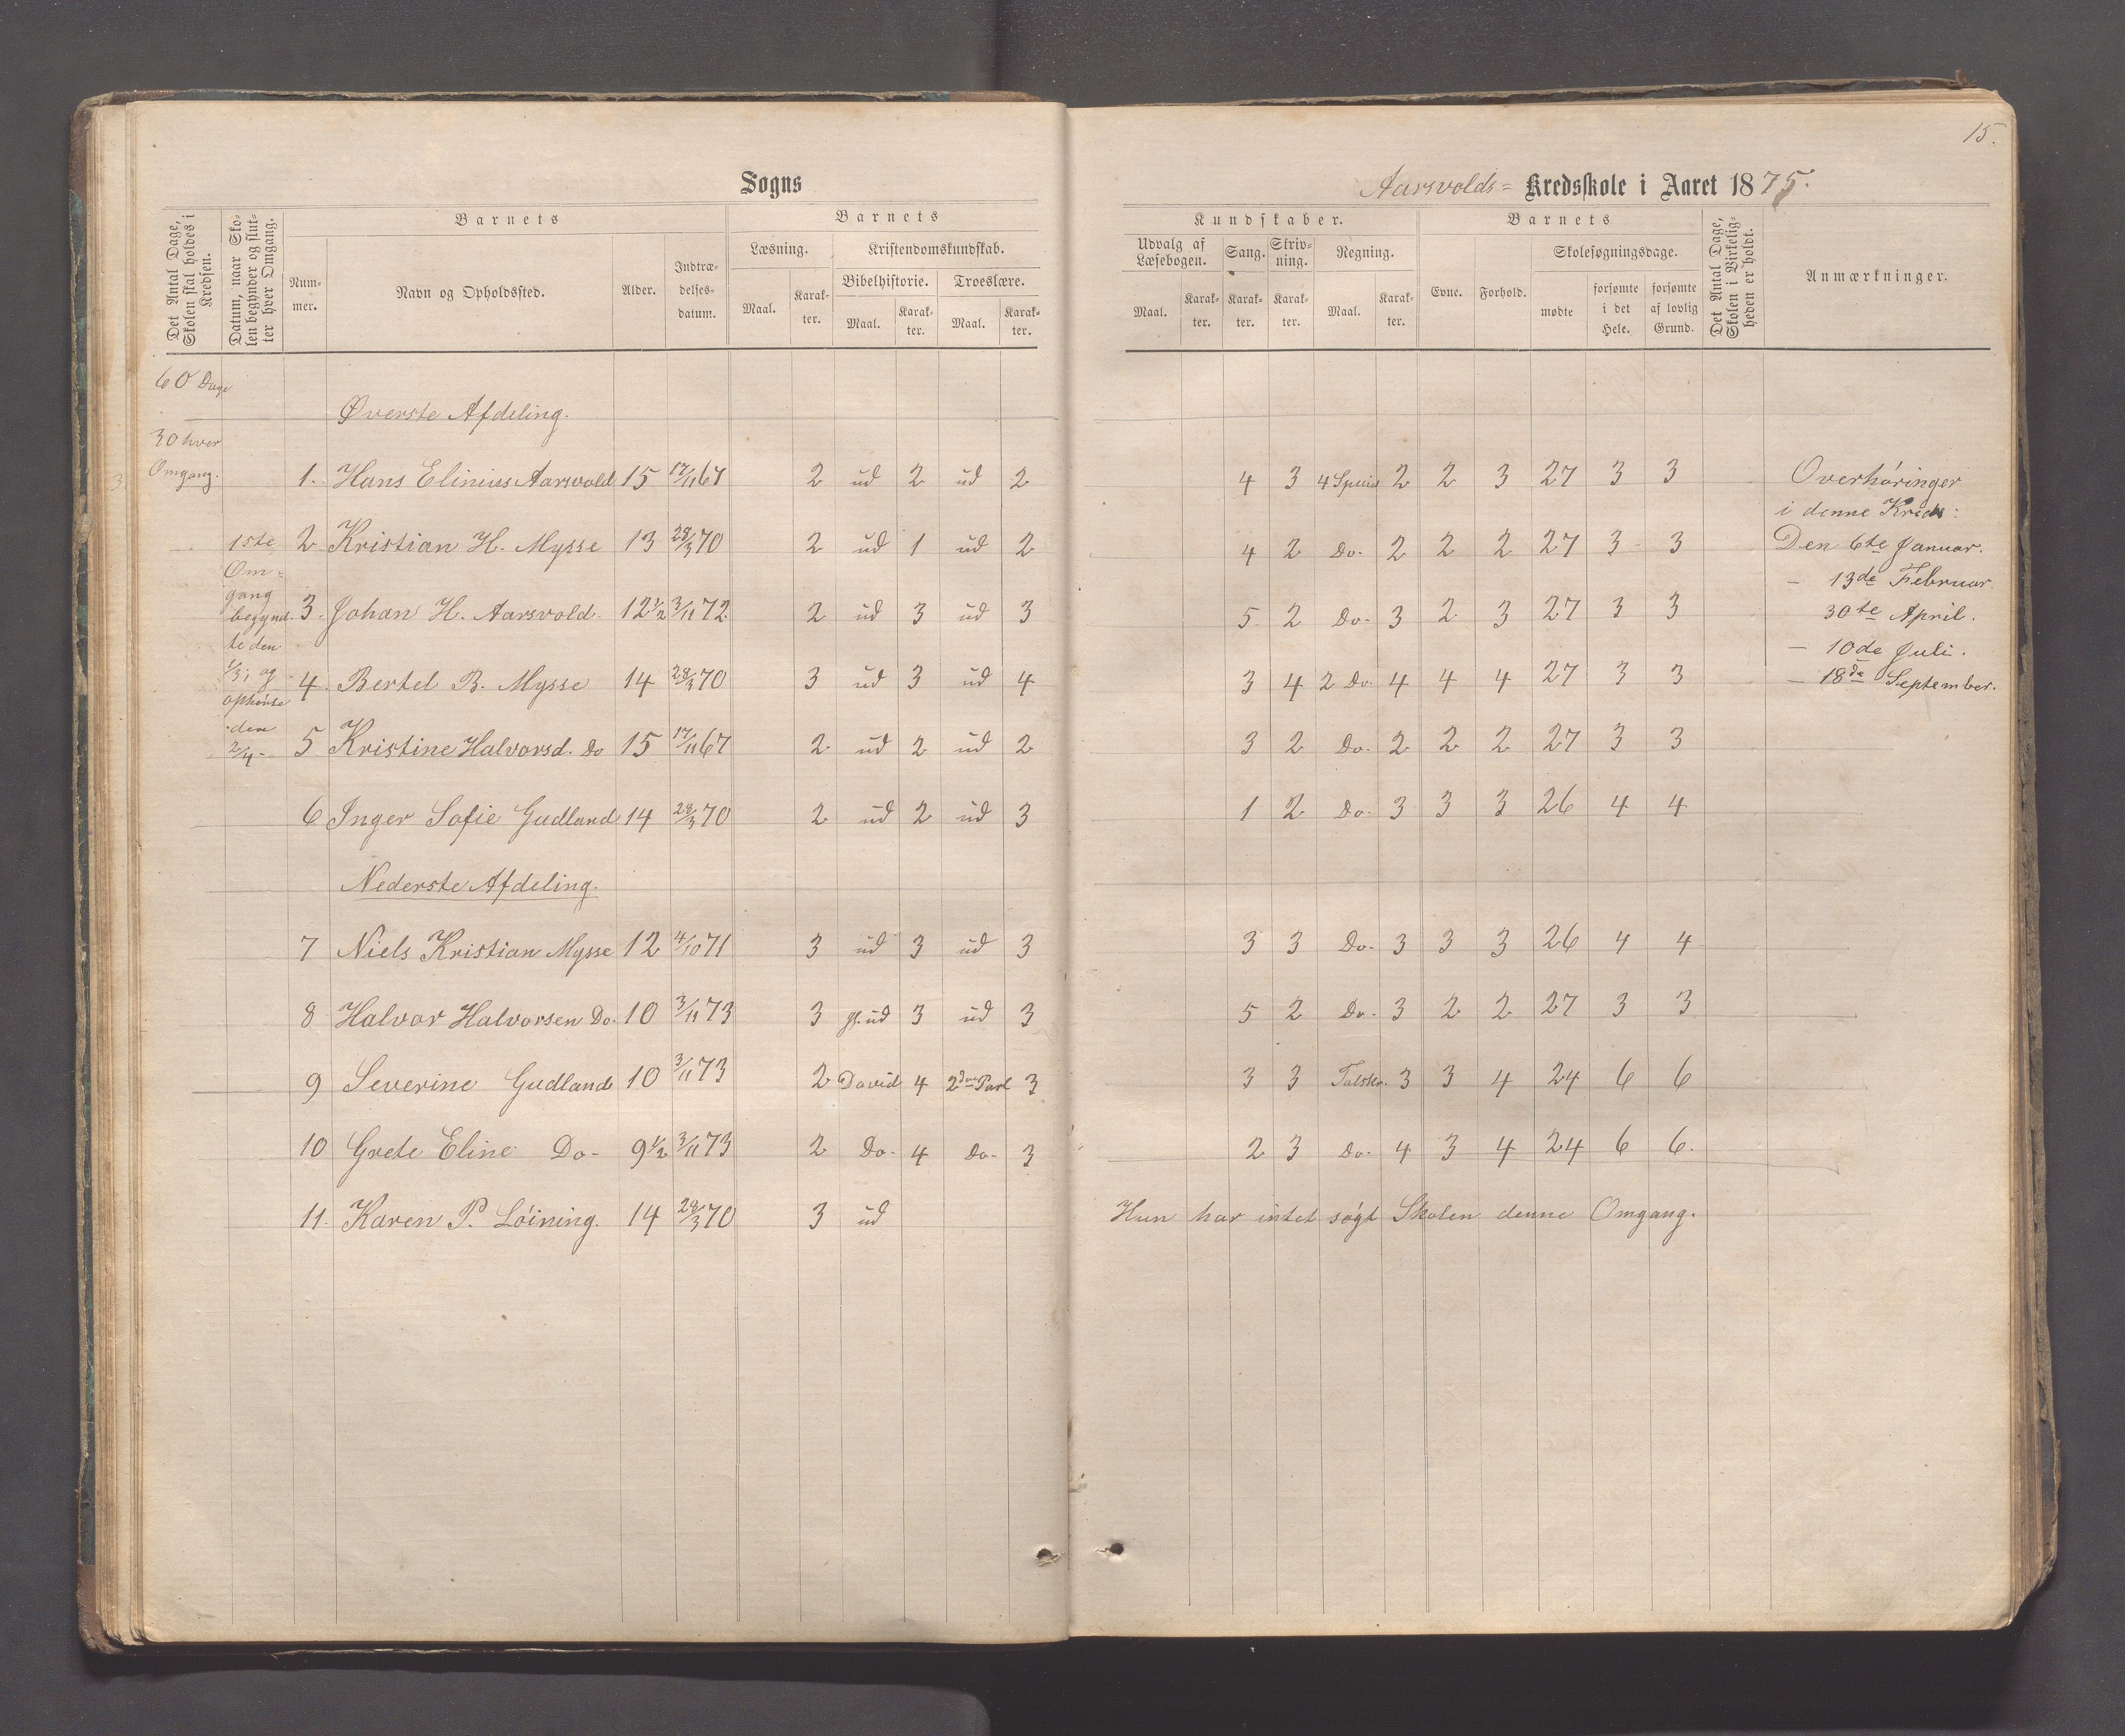 15.
Sogns
Aarsvolds= Kredsskole i Aaret 1875.
Det Antal Dage, Skolen skal holdes i Kredsen.
Datum, naar Skolen begynder og slutter hver Omgang.
Barnets
Nummer.
Navn og Opholdssted.
Alder.
Indtrædelsesdatum.
Barnets
Læsning.
Maal.
Karakter.
Kristendomskundskab.
Bibelhistorie.
Maal.
Karakter.
Troeslære.
Maal.
Karakter.
Kundskaber.
Udvalg af Læsebogen.
Maal.
Karakter.
Sang.
Karakter.
Skrivning.
Karakter.
Regning.
Maal.
Karakter.
Barnets
Evne.
Forhold.
Skolesøgningsdage.
mødte
forsømte i det Hele.
forsømte af lovlig Grund.
Det Antal Dage, Skolen i Virkeligheden er holdt.
Anmærkninger.
60 Dage
30 hver
Omgang.
1ste
Om-
gang
begynd-
te den
1/3; og
ophørte
den
2/4 -
Øverste Afdeling.
1. Hans Elinius Aarsvold 15 17/11 67 2 ud 2 ud 2 4 3 2 2 3 27 3 3
2 Kristian H. Mysse 13 28/3 70 2 ud 1 ud 2 4 2 Do. 2 2 2 27 3 3
3. Johan H. Aarsvold. 12 1/2 3/11 72 2 ud 3 ud 3 5 2 Do. 3 2 3 27 3 3
4. Bertel B. Mysse 14 28/3 70 3 ud 3 ud 4 3 4 2 Do. 4 4 4 27 3 3
5 Kristine Halvorsd. Do 15 17/11 67 2 ud 2 ud 2 3 2 Do. 2 2 2 27 3 3
6 Inger Sofie Gudland 14 28/3 70 2 ud 2 ud 3 1 2 Do. 3 3 3 26 4 4
Nederste Afdeling.
7 Niels Kristian Mysse 12 4/10 71 3 ud 3 ud 3 3 3 Do. 3 3 3 26 4 4
8 Halvor Halvorsen Do. 10 3/11 73 3 ud 3 ud 3 5 2 Do. 3 2 2 27 3 3
9 Severine Gudland 10 3/11 73 2 David 4 2den Parl 3 3 3 Talskr. 3 3 4 24 6 6
10 Grete Eline Do- 9 1/2 3/11 73 2 Do. 4 Do. 3 2 3 Do. 4 3 4 24 6 6.
11. Karen P. Löining. 14 28/3 70 3 ud Hun har intet søgt Skolen denne Omgang.
Overhøringer
i denne Kreds:
Den 6te Januar.
- 13de Februar
30te April.
- 10de Juli.
- 18de September.